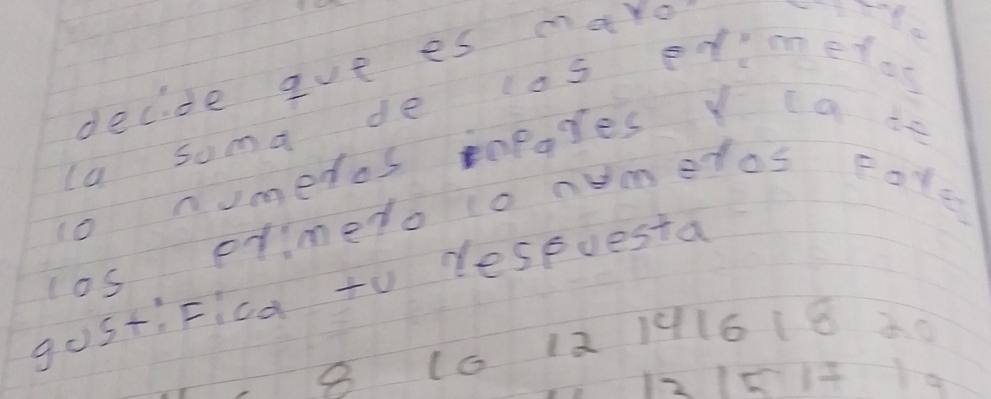 decide que es mayo
la suma de los primeros
10 numeros inpares y la de
los primero 10 numeros pares
gustifica tu respuesta
8 10 12 14 16 18 20
13 15 17 19